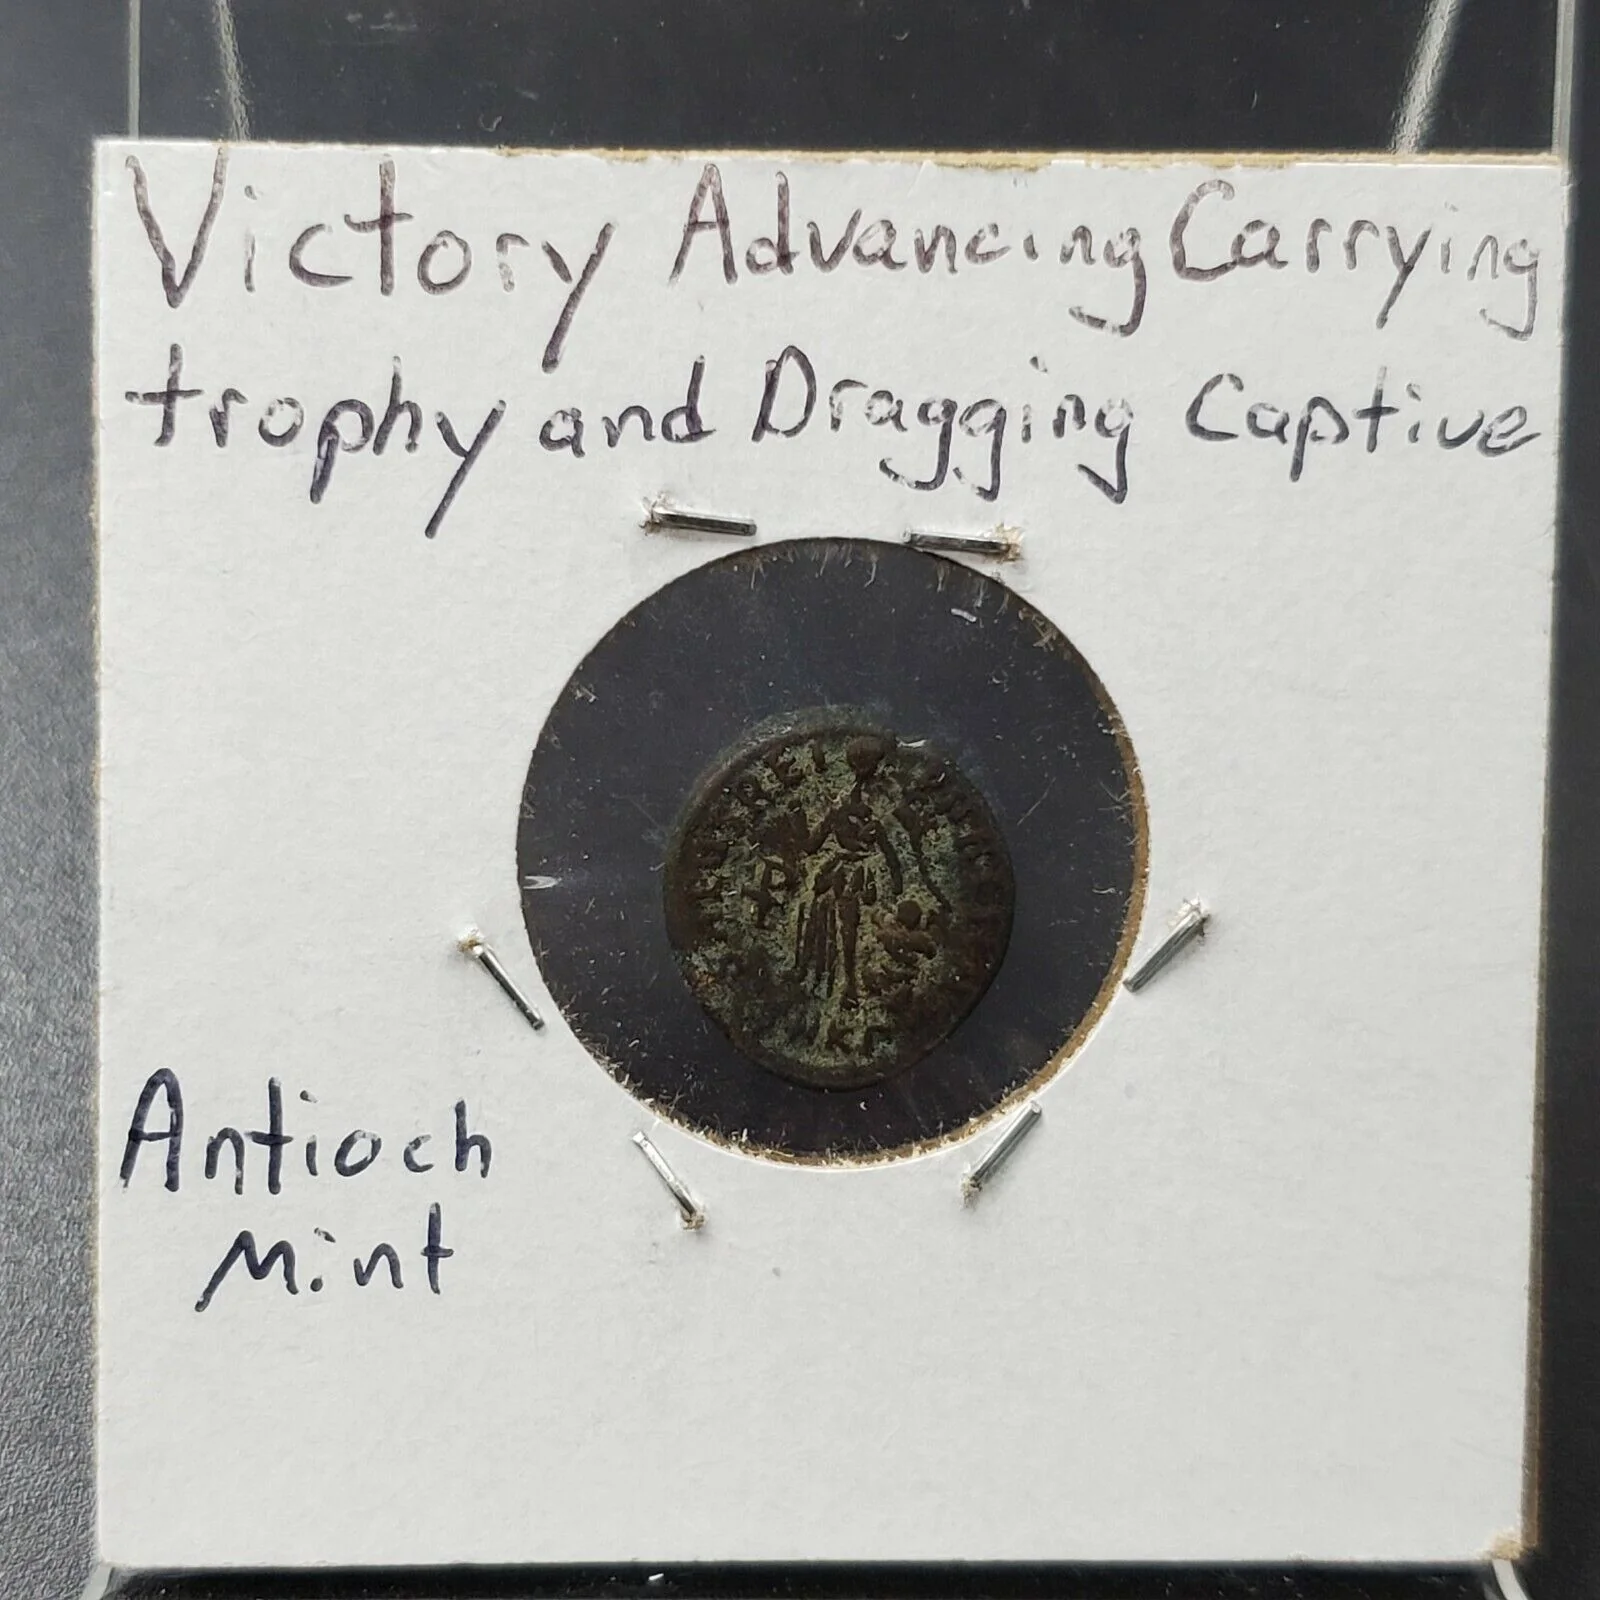 Victory Advancing Carrying
trophy and Dragging Captive
Antioch
Mint